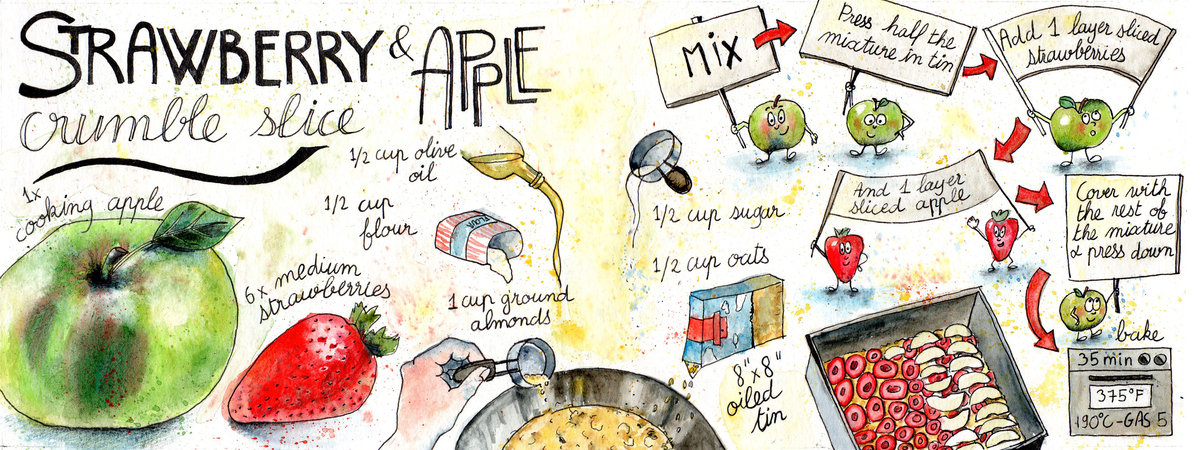 STRAWBERRY & APPLE
crumble slice
1x
cooking apple
6x medium
strawberries
1/2 cup olive
oil
1/2 cup
flour
1 cup ground
almonds
1/2 cup sugar
1/2 cup oats
8"x8"
oiled
tin
MIX
Press half the
mixture in tin
Add 1 layer sliced
strawberries
And 1 layer
sliced apple
Cover with
the rest of
the mixture
& press down
bake
35 min
375°F
190°C-GAS 5